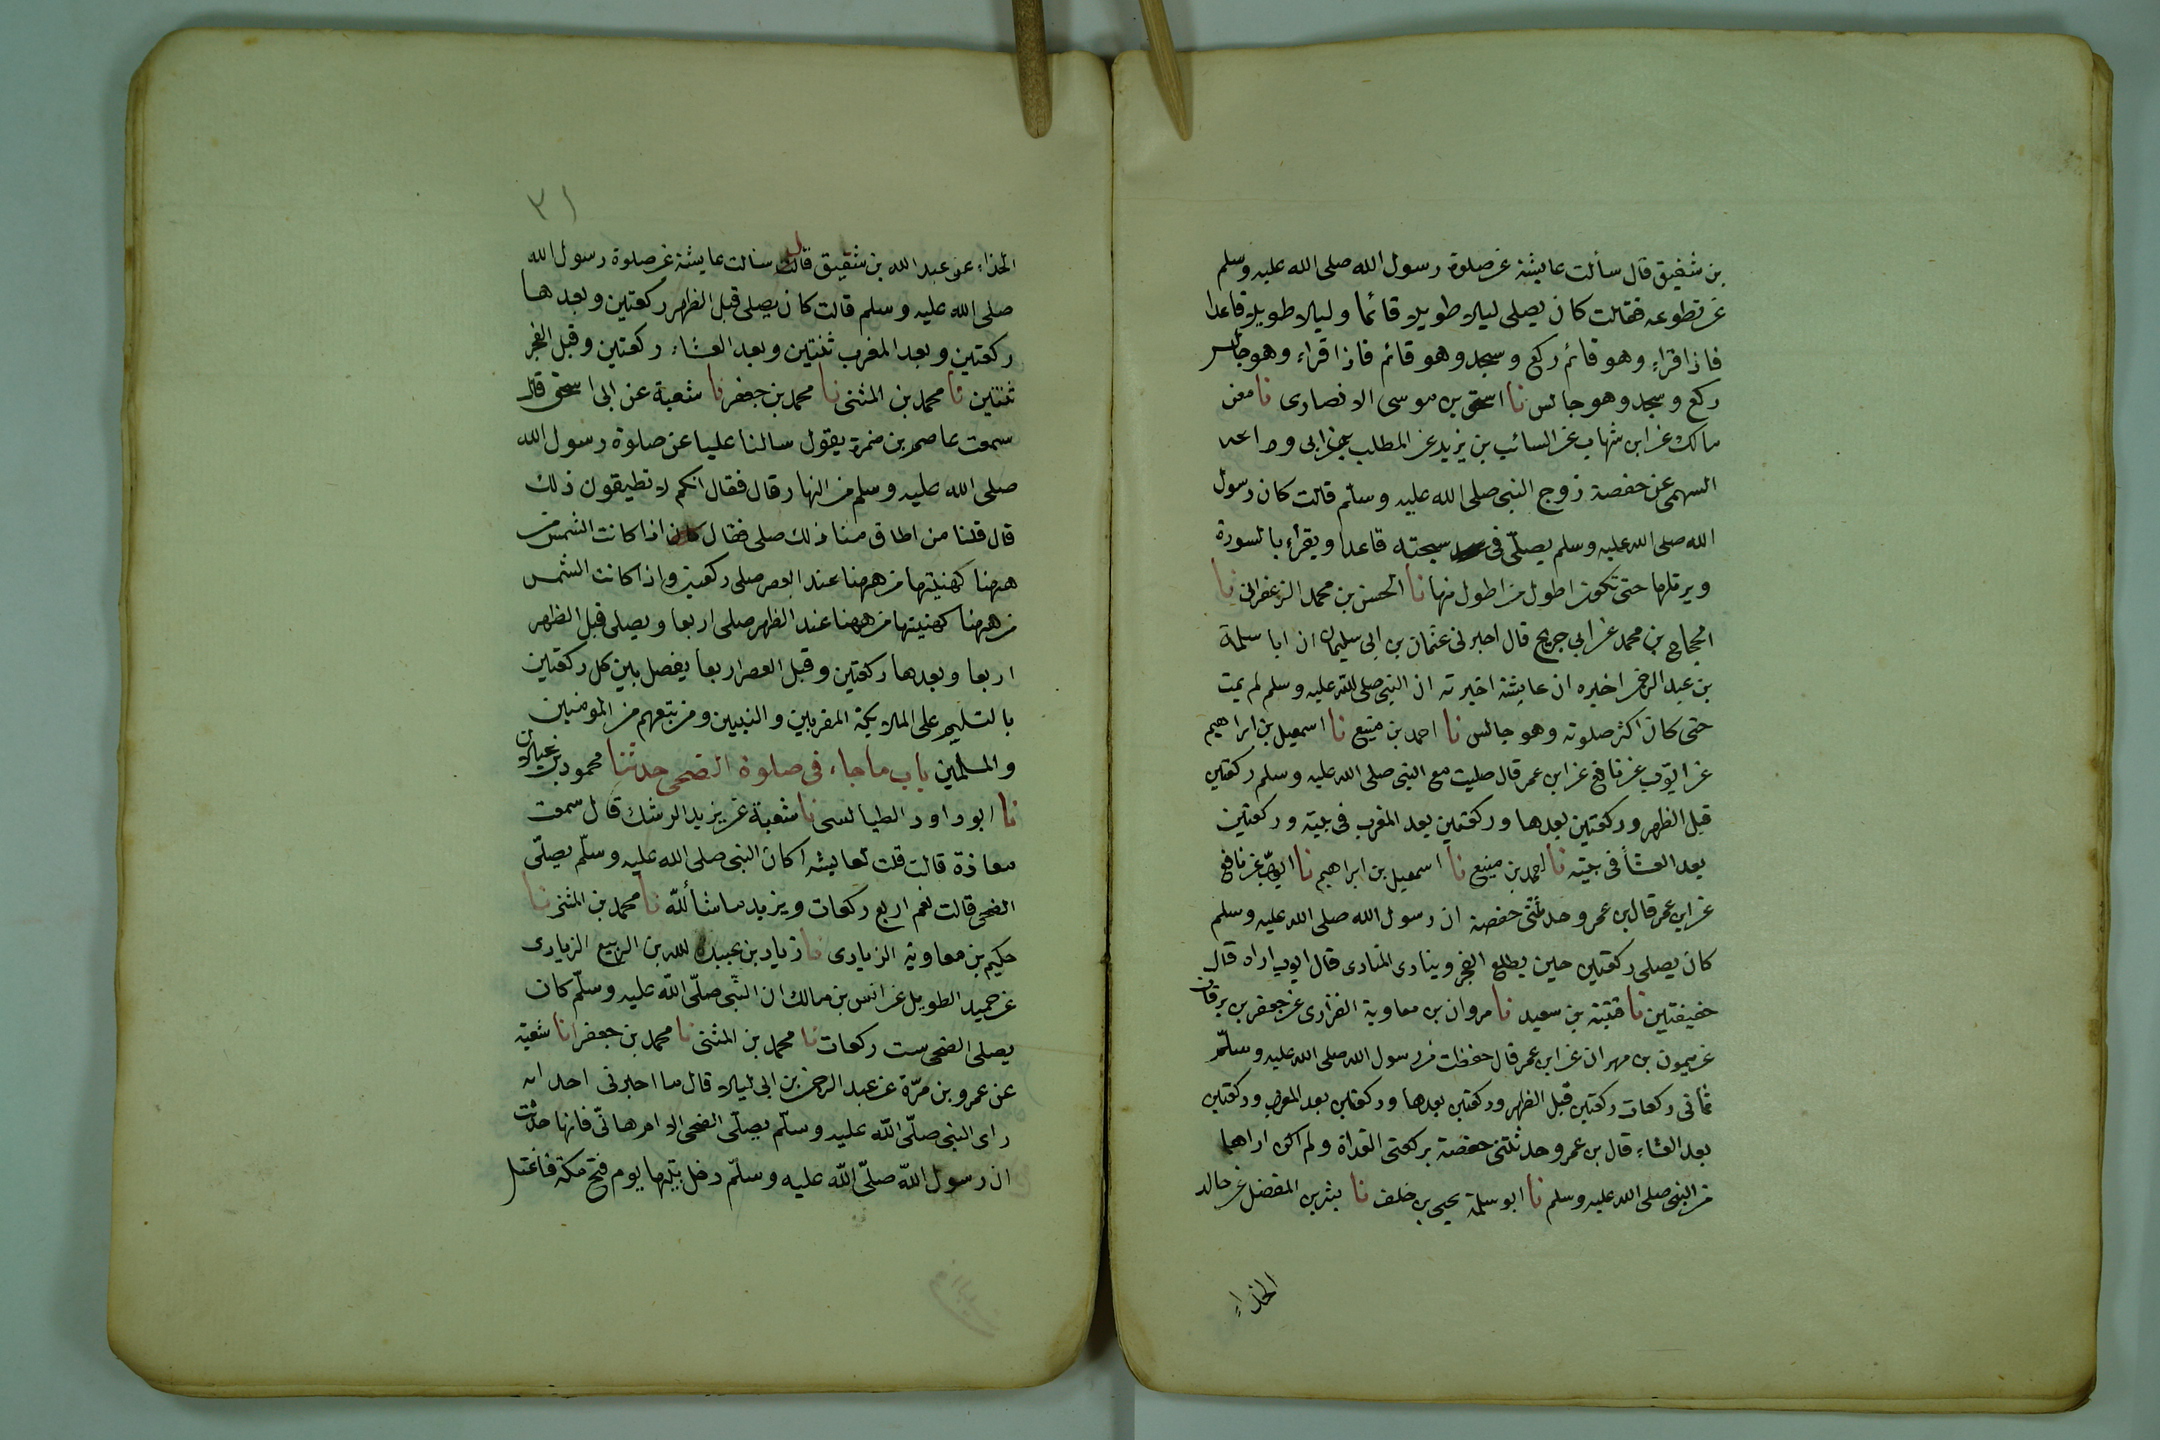 بن شقيق قال سألت عايشة عن صلوة رسول الله صلى الله عليه وسلم
عن تطوعه فقالت كان يصلى ليلا طويلا قائما وليلا طويلا قاعدا
فاذا قراء وهو قائم ركع وسجد وهو قائم فاذا قراء وهو جالس
ركع وسجد وهو جالس نا اسحق بن موسى الانصارى نا معن
مالك عن ابن شهاب عن السائب بن يزيد عن المطلب بن ابى وداعه
السهمى عن حفصة زوج النبى صلى الله عليه وسلم قالت كان رسول
الله صلى الله عليه وسلم يصلّى فى سبحته قاعدا ويقرأ بالسورة
ويرتلها حتى تكون اطول من اطول منها نا الحسن بن محمد الزعفرانى نا
الحجاج بن محمد عن ابي جريج قال اخبرنى عثمان بن ابى سليمان ان ابا سلمة
بن عبد الرحمن اخبره ان عايشة اخبرته ان النبى صلى الله عليه وسلم لم يمت
حتى كان اكثر صلوته وهو جالس نا احمد بن منيع نا اسمعيل بن ابراهيم
عن ايوب عن نافع عن ابن عمر قال صليت مع النبى صلى الله عليه وسلم ركعتين
قبل الظهر وركعتين بعدها وركعتين بعد المغرب فى بيته وركعتين
بعد العشأ فى بيته نا احمد بن منيع نا اسمعيل بن ابراهيم نا ايوب عن نافع
عن ابن عمر قال بن عمر وحدثتنى حفصة ان رسول الله صلى الله عليه وسلم
كان يصلى ركعتين حين يطلع الفجر وينادى المنادى قال ايوب اراه قال
خفيفتين نا قتيبة بن سعيد نا مروان بن معاوية الفزارى عن جعفر بن برقان
عن ميمون بن مهران عن ابن عمر قال حفظت من رسول الله صلى الله عليه وسلّم
ثمانى ركعات ركعتين قبل الظهر وركعتين بعدها وركعتين بعد المغرب وركعتين
بعد العشاء قال بن عمر وحدثتنى حفصة بركعتى الغداة ولم اكن اراهما
من النبى صلى الله عليه وسلم نا ابو سلمة يحيى بن خلف نا بشر بن المفضل عن خالد
الحذاء
٣١
الحذاء عن عبد الله بن شقيق قال سالت عايشة عن صلوة رسول الله
صلى الله عليه وسلم قالت كان يصلى قبل الظهر ركعتين وبعدها
ركعتين وبعد المغرب ثنتين وبعد العشاء ركعتين وقبل الفجر
ثنتين نا محمد بن المثنى نا محمد بن جعفر نا شعبة عن ابى اسحق قال
سمعت عاصم بن ضمرة يقول سالنا عليا عن صلوة رسول الله
صلى الله عليه وسلم من النهار قال فقال انكم لا تطيقون ذلك
قال قلنا من اطاق منا ذلك صلى فقال كان اذا كانت الشمس من
ههنا كهئيتها من ههنا عند العصر صلى ركعتين واذا كانت الشمس
من ههنا كهئيتها من ههنا عند الظهر صلى اربعا ويصلى قبل الظهر
اربعا وبعدها ركعتين وقبل العصر اربعا يفصل بين كل ركعتين
بالتسليم على الملايكة المقربين والنبيين ومن تبعهم من المومنين
والمسلمين باب ما جاء فى صلوة الضحى حدثنا محمود بن غيلان
نا ابو داود الطيالسى نا شعبة عن يزيد الرشك قال سمعت
معاذة قالت قلت لعايشه اكان النبى صلى الله عليه وسلّم يصلّى
الضحى قالت نعم اربع ركعات ويزيد ما شأ الله نا محمد بن المثنى نا
حكيم بن معاوية الزيادى نا زياد بن عبيد الله بن الربيع الزيادى
عن حميد الطويل عن انس بن مالك ان النّبى صلّى الله عليه وسلّم كان
يصلى الضحى ست ركعات نا محمد بن المثنى نا محمد بن جعفر انا شعبة
عن عمرو بن مرّة عن عبد الرحمن بن ابى ليلا قال ما اخبرنى احد انه
راى النبى صلّى الله عليه وسلّم يصلّى الضحى الا ام هانّى فانها حدثت
ان رسول الله صلّى الله عليه وسلّم دخل بيتها يوم فتح مكة فاغتسل